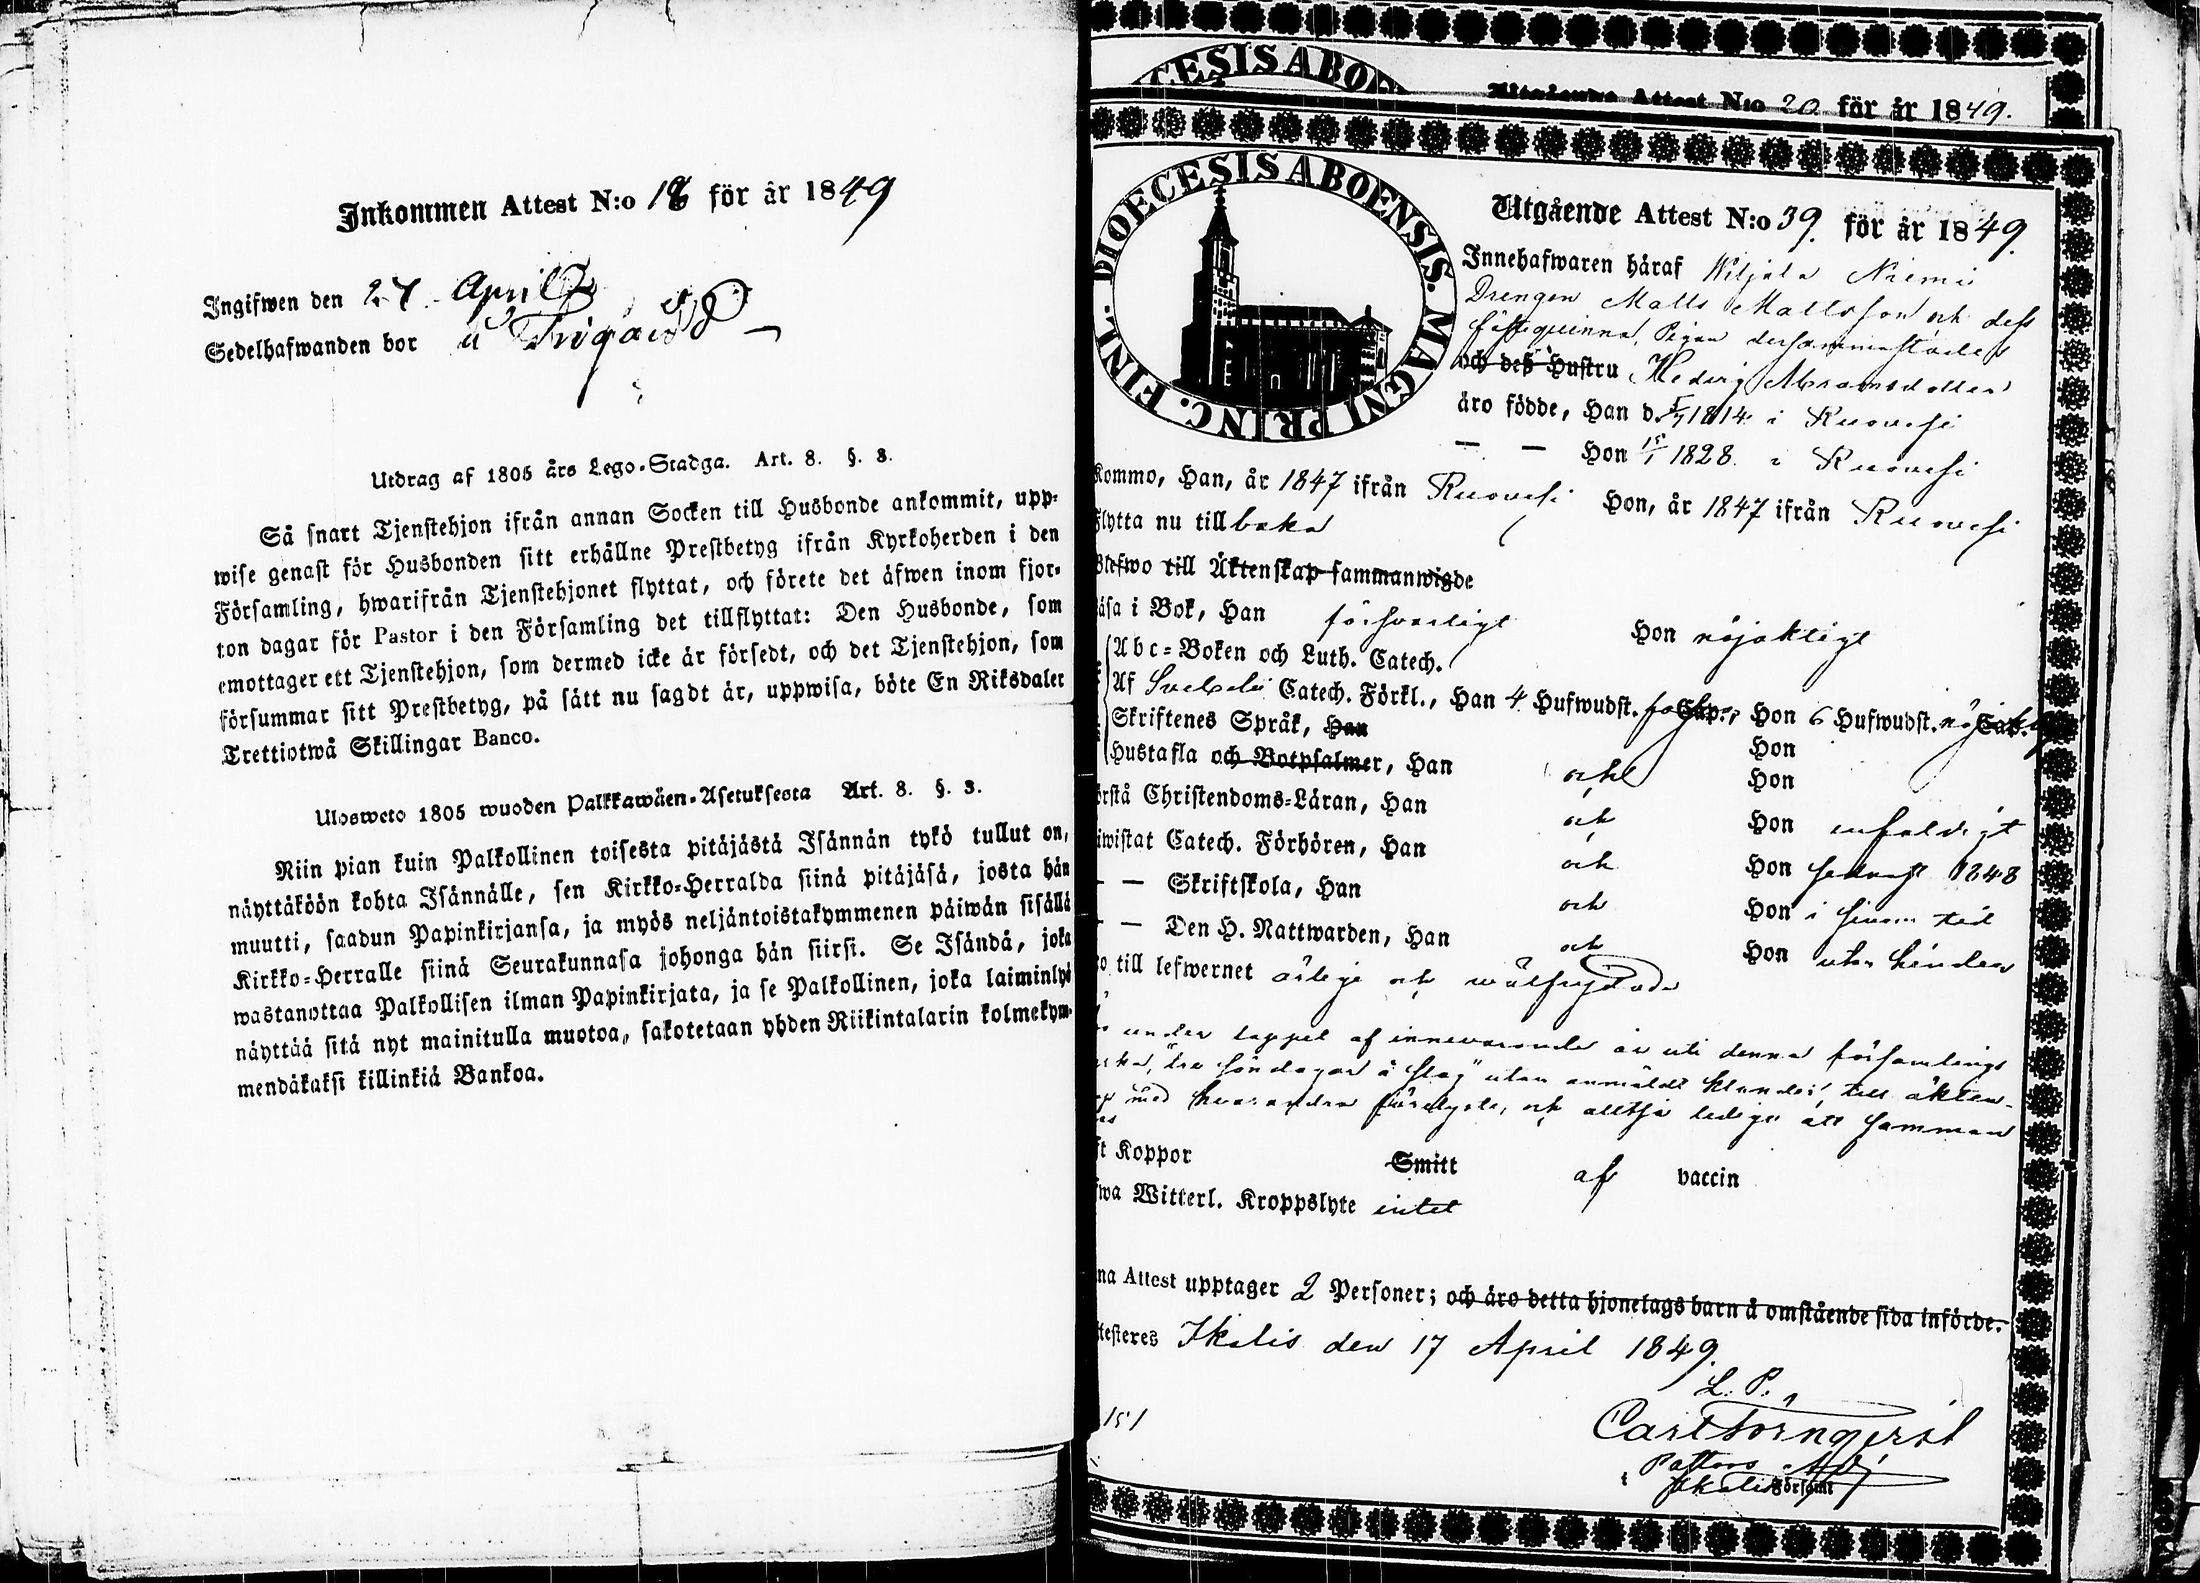 Inkommen Attest N:o 18 för år 1849
Ingifwen den 27 April
Sedelhafwanden bor
Utdrag af 1805 års Lego-Stadga. Art. 8. §. 3.
Så snart Tjenstehjon ifrån annan Socken till Husbonde ankommit, upp-
wise genast för Husbonden sitt erhållne Prestbetyg ifrån Kyrkoherden i den
Församling, hwarifrån Tjenstehjonet flyttat, och förete det äfwen inom fjor-
ton dagar för Pastor i den Församling det tillflyttat: Den Husbonde, som
emottager ett Tjenstehjon, som dermed icke är försedt, och det Tjenstehjon, som
försummar sitt Prestbetyg, på sätt nu sagdt är, uppwisa, böte En Riksdaler
Trettiotwå Skillingar Banco.
Ulosweto 1805 wuoden Palkkawäen-Asetuksesta Art. 8. §. 3.
Niin pian kuin Palkollinen toisesta pitäjästä Isännän tykö tullut on,
näyttäköön kohta Isännälle, sen Kirkko-Herralda siinä pitäjäsä, josta hän
muutti, saadun Papinkirjansa, ja myös neljäntoistakymmenen päiwän sisällä
Kirkko-Herralle siinä Seurakunnasa johonga hän siirsi. Se Isändä, joka
wastanottaa Palkollisen ilman Papinkirjata, ja se Palkollinen, joka laiminlyö
näyttää sitä nyt mainitulla muotoa, sakotetaan yhden Riikintalarin kolmekym-
mendäkaksi killinkiä Bankoa.
CESIS ABOE
Utgående Attest N:o 20 för år 1849.
DIOECESIS ABOENSIS. MAGNI PRINC. FINL.
Utgående Attest N:o 39. för år 1849.
Innehafwaren häraf Wiljala Niemi
Drengen Matts Mattsson och dess
fästequinna, Pigan dersammastädes
och deß Hustru Hedvig Abramsdotter
äro födde, Han d. 1814 i Ruovesi
— — Hon 15/1 1828 i Ruovesi
Kommo, Han, år 1847 ifrån Ruovesi Hon, år 1847 ifrån Ruovesi
Flytta nu tillbaka
Blefwo till Äktenskap sammanwigde
läsa i Bok, Han försvarligt Hon nöjaktigt
Abc-Boken och Luth. Catech.
Af Svebelii Catech. Förkl., Han 4 Hufwudst. Cap., Hon 6 Hufwudst. Cap.
Skriftenes Språk, Han Hon
Hustafla och Botpsalmer, Han och Hon
örstå Christendoms-Läran, Han och Hon enfaldigt
iwistat Catech. Förhören, Han och Hon senast 1848
— — Skriftskola, Han och Hon i sinom tid
— — Den H. Nattwarden, Han och Hon utan hinder
o till lefwernet ärlige och wälfrejdade
under loppet af innevarande år uti denna församlings
tre söndagar å slag utan anmäldt klander, till äkten-
med hvarandra förelyste, och alltså ledige att samman
ft Koppor Smitt af vaccin
fwa Witterl. Kroppslyte intet
na Attest upptager 2 Personer; och äro detta hjonelags barn å omstående sida införde.
testeres Ikalis den 17 April 1849.
L. P.
151
Carl Törnqvist
Pastors Adj.
i Ikalis Församl